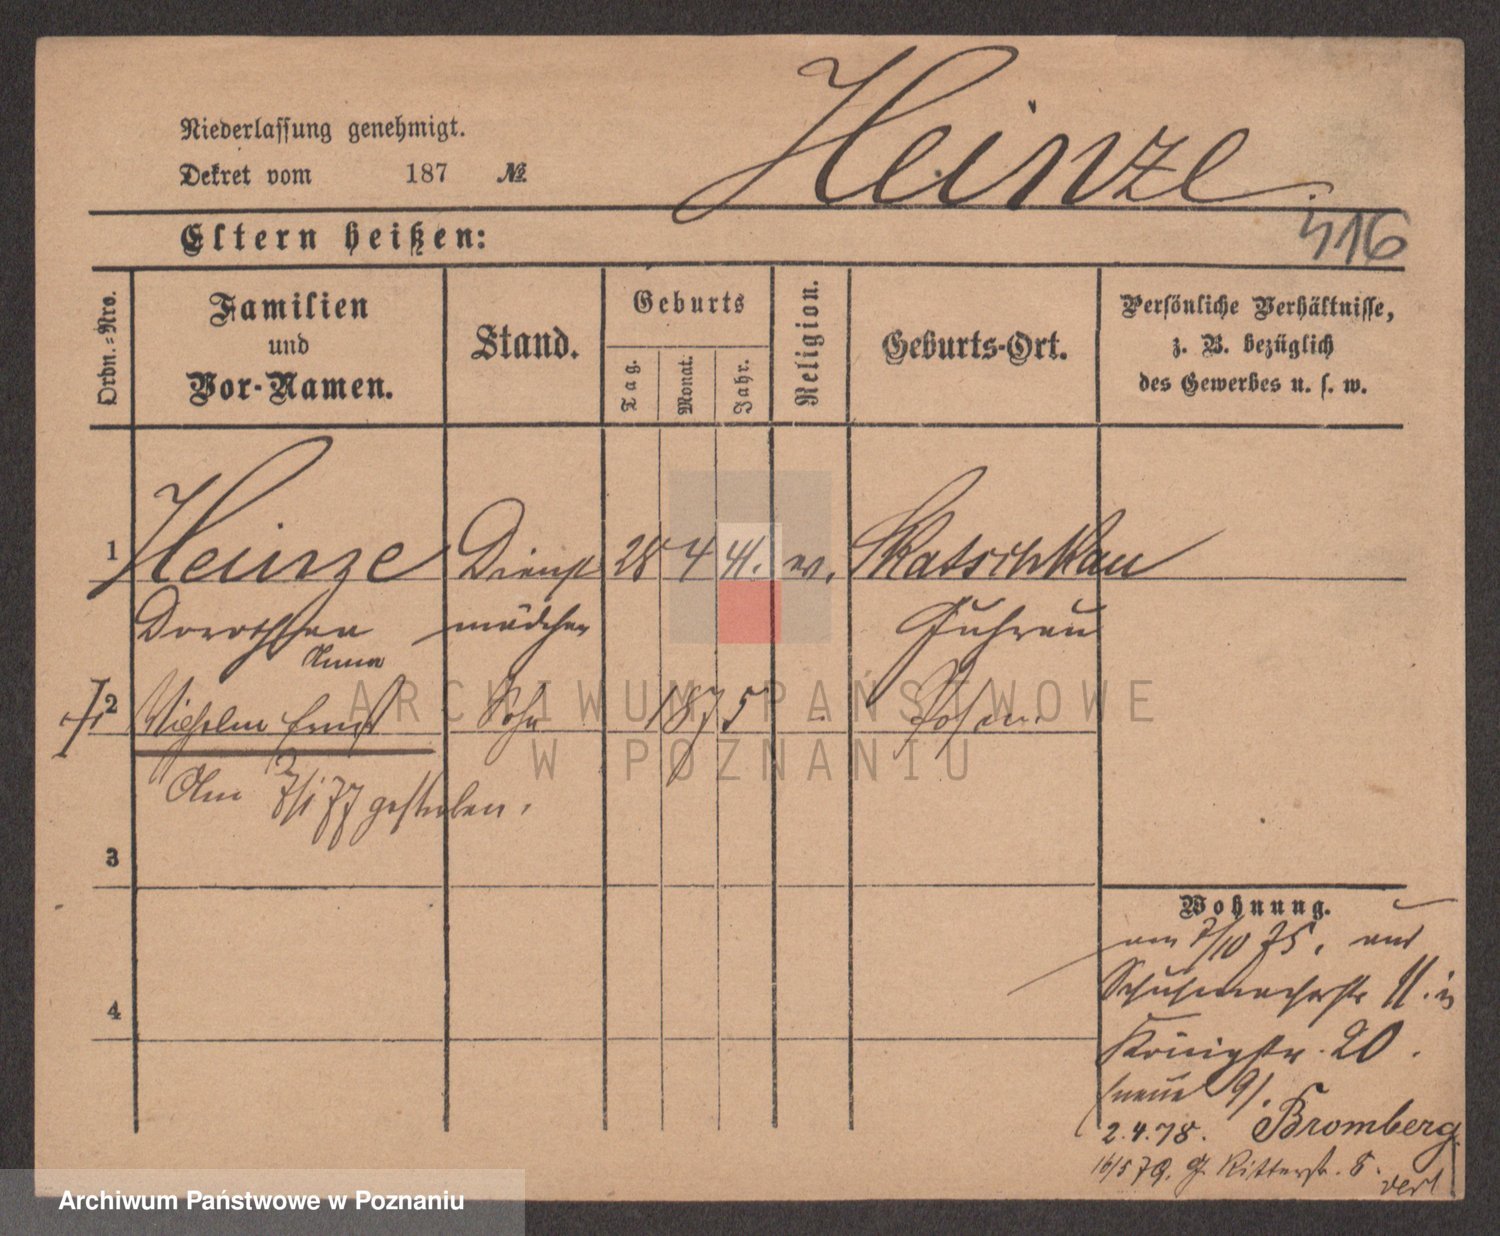 Heinze
Niederlassung genehmigt.
Dekret vom 187 №
416
Eltern heißen:
Ordn.-Nro.
Familien
und
Vor-Namen.
Stand.
Geburts
Tag.
Monat.
Jahr.
Religion.
Geburts-Ort.
Persönliche Verhältnisse,
z. B. bezüglich
des Gewerbes u. s. w.
1 Heinze Dienst 28 4 41. ev. Skatschkau
Dorothea mädchen Guhrau
Anna
2 Wilhelm Ernst Sohn 1875 Posen.
Am 7/1 77 gestorben.
3
4
Wohnung.
am 7/10 75. aus
Schuhmacherstr 11. in
Königstr. 20.
(neue 9/.
2.4.78. Bromberg
16/5 79. Ritterstr. 5.
ARCHIWUM PAŃSTWOWE
W POZNANIU
Archiwum Państwowe w Poznaniu